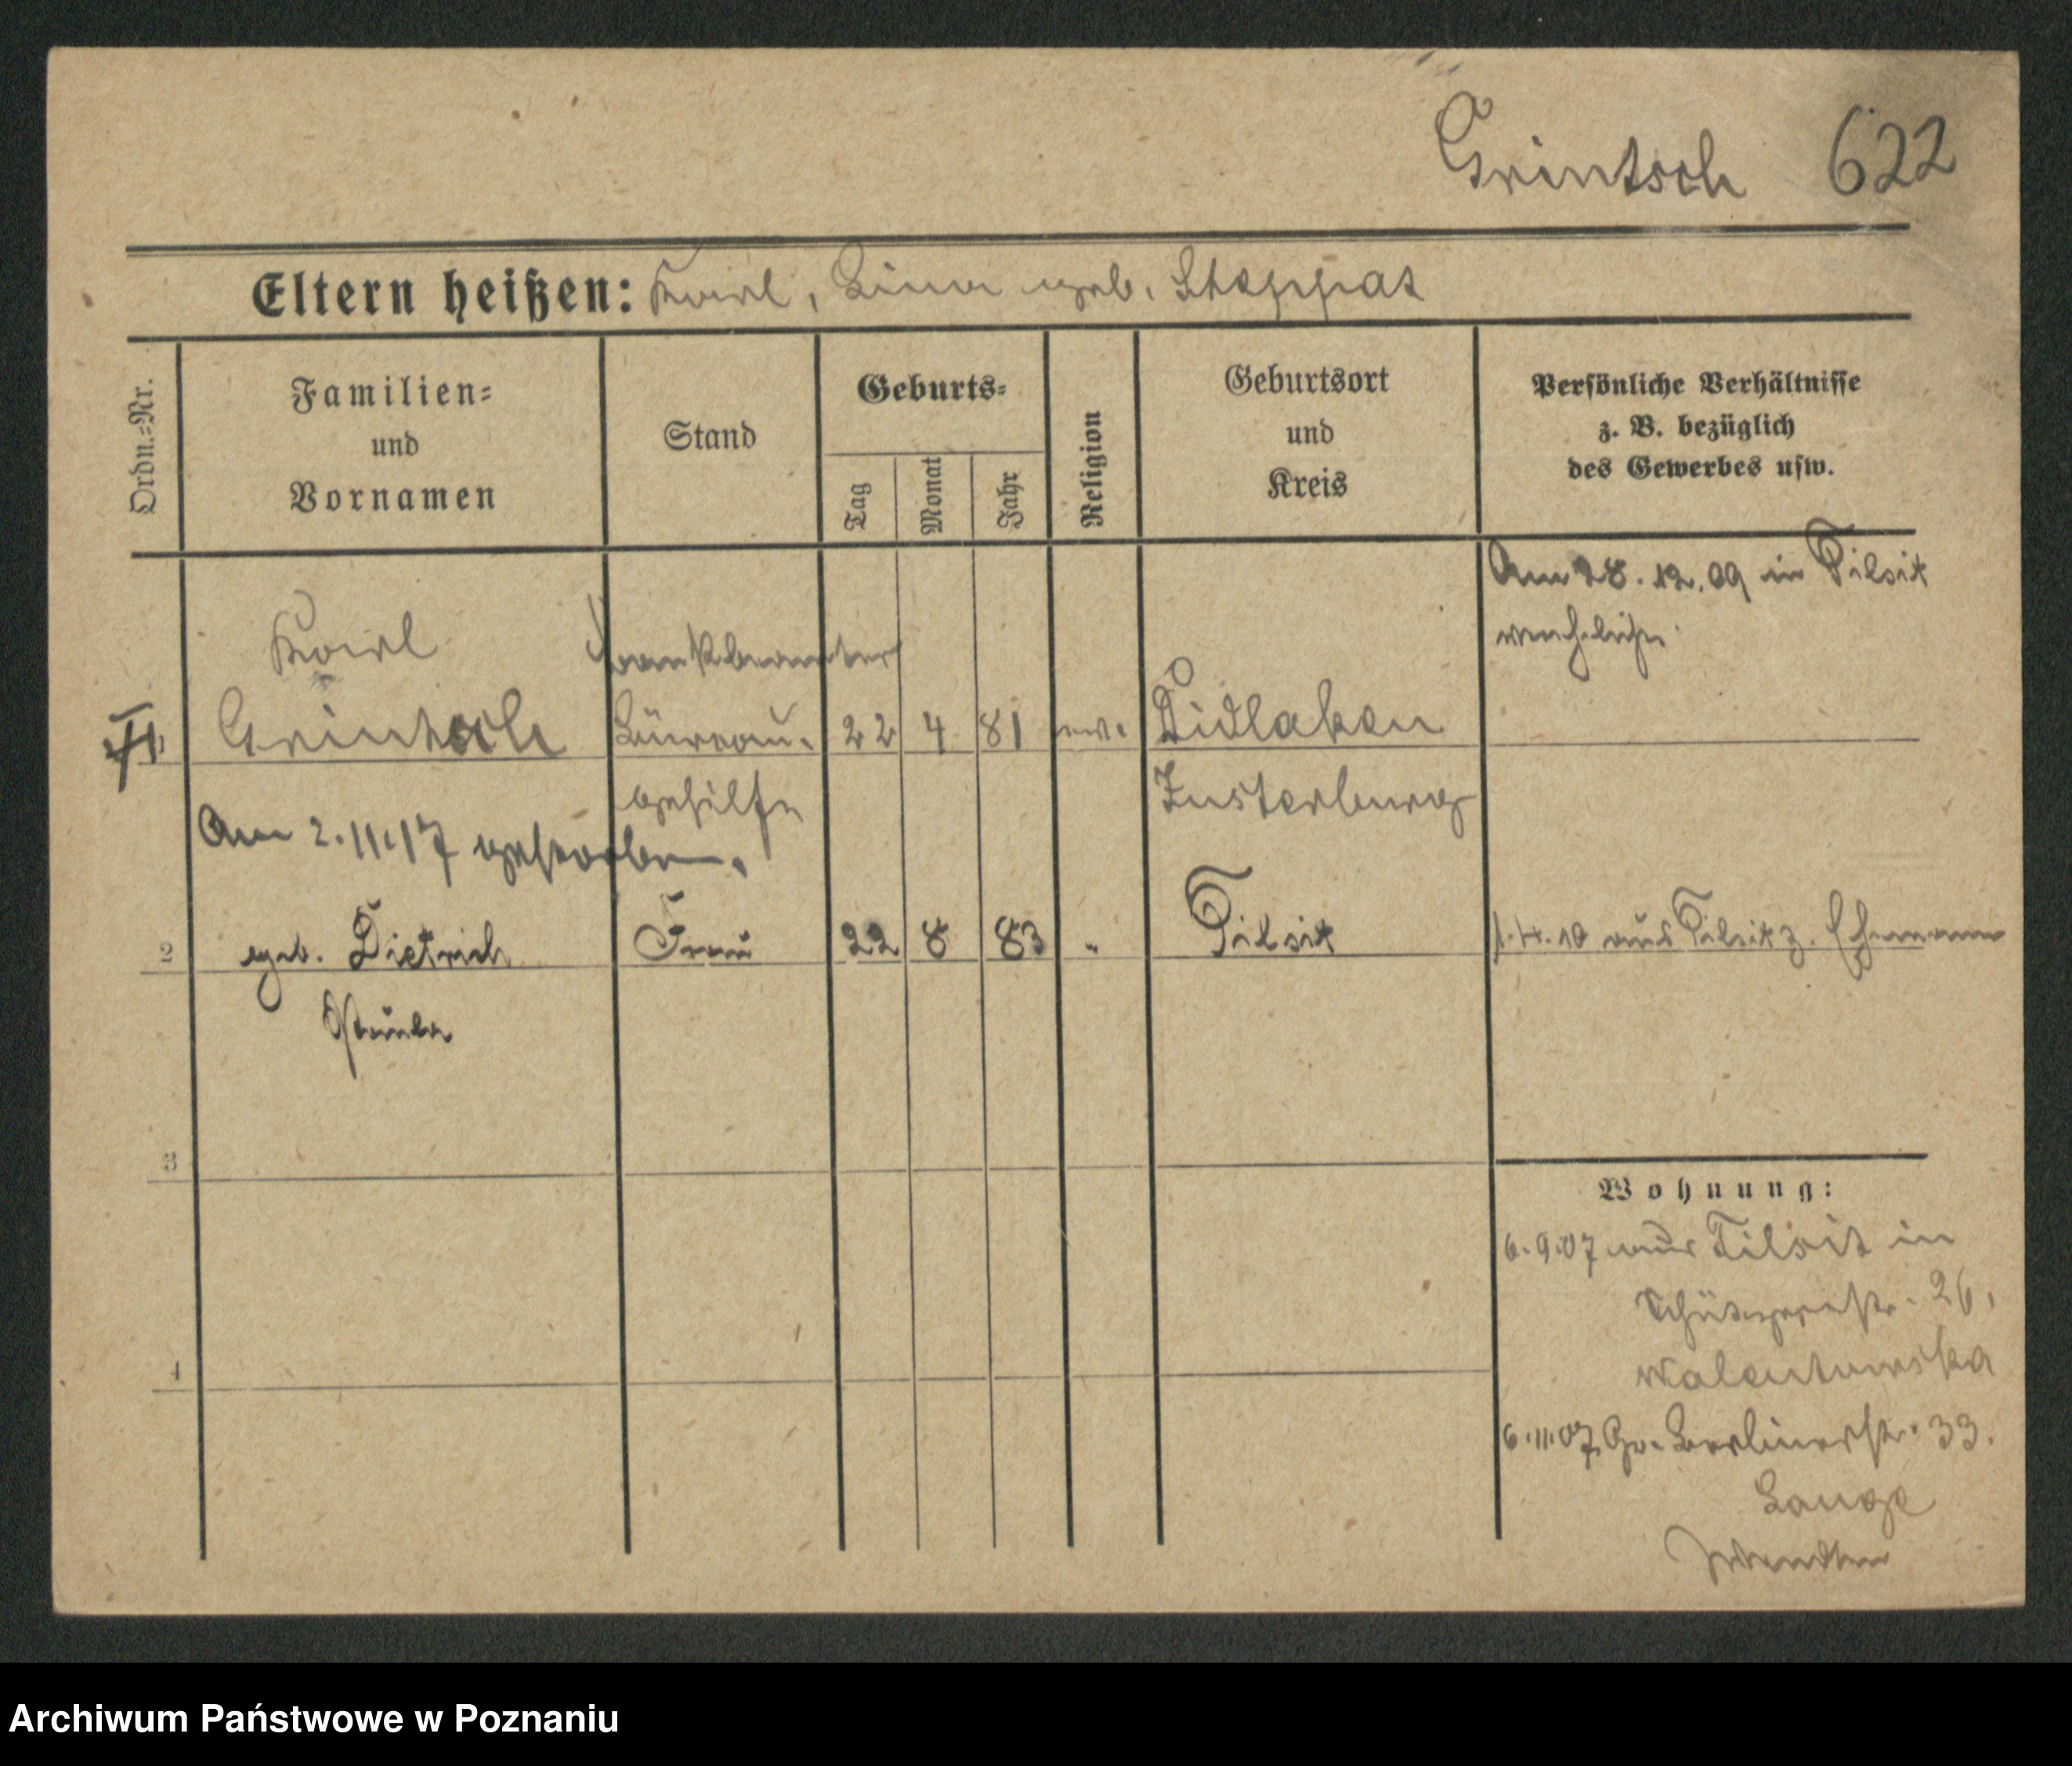 Grintsch 622
Eltern heißen: Karl, Lina geb. Steppat
Ordn.-Nr.
Familien-
und
Vornamen
Stand
Geburts-
Tag
Monat
Jahr
Religion
Geburtsort
und
Kreis
Persönliche Verhältnisse
z. B. bezüglich
des Gewerbes usw.
Am 28.12.09 in Tilsit
verehelicht
Karl
Bankbeamter
Grintsch Büreau- 22 4 81 ev. Didlaken
gehilfe Insterburg
Am 2.11.17 gestorben.
2 geb. Dietrich Frau 22 8 83 " Tilsit 1.4.10 aus Tilsit z. Ehemann
Paula
3
Wohnung:
6.9.07 aus Tilsit in
Schützenstr. 26,
4
6.11.07 Gr. Berlinerstr. 33.
Lange
Wenden
Archiwum Państwowe w Poznaniu